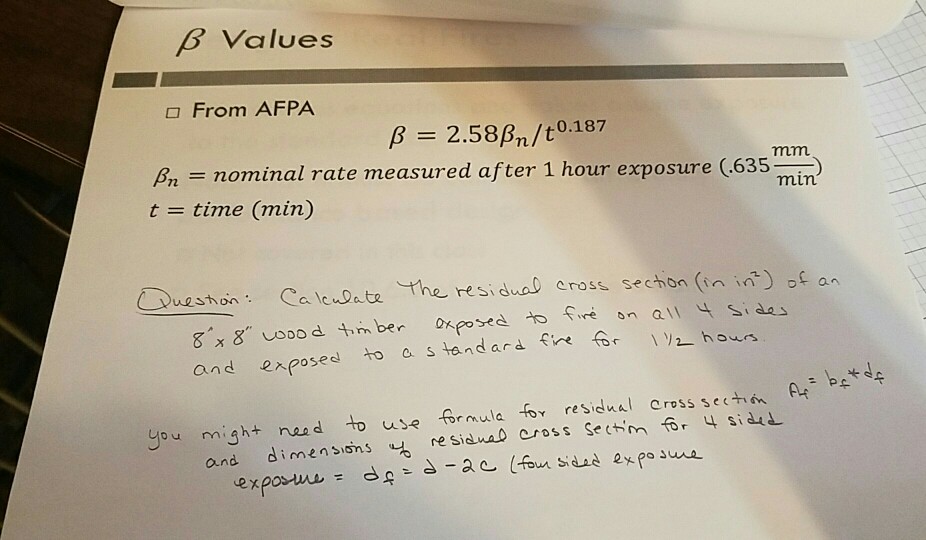 β Values
□ From AFPA
β = 2.58βₙ/t^0.187
βₙ = nominal rate measured after 1 hour exposure (.635 mm/min)
t = time (min)
Question: Calculate The residual cross section (in in²) of an
8" x 8" wood timber exposed to fire on all 4 sides
and exposed to a standard fire for 1 1/2 hours.
you might need to use formula for residual cross section A_f = b_f * d_f
and dimensions of residual cross section for 4 sided
exposure = d_f = d - 2c (four sided exposure